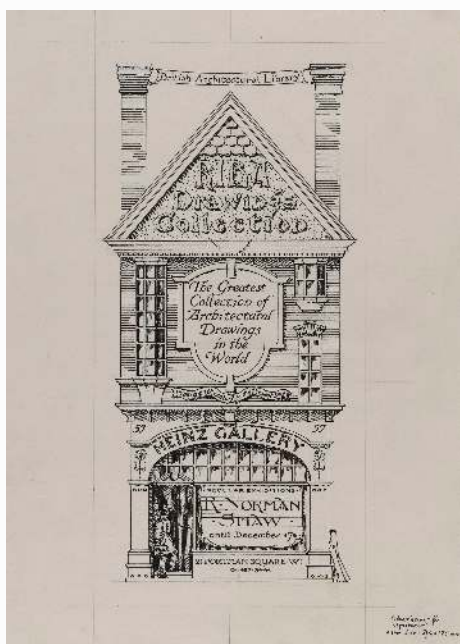 British Architectural Library
RIBA
Drawings
Collection
The Greatest
Collection of
Architectural
Drawings
in the
World
57 57
HEINZ GALLERY
REGULAR EXHIBITIONS
R. NORMAN
SHAW
until December 17
21 PORTMAN SQUARE W1